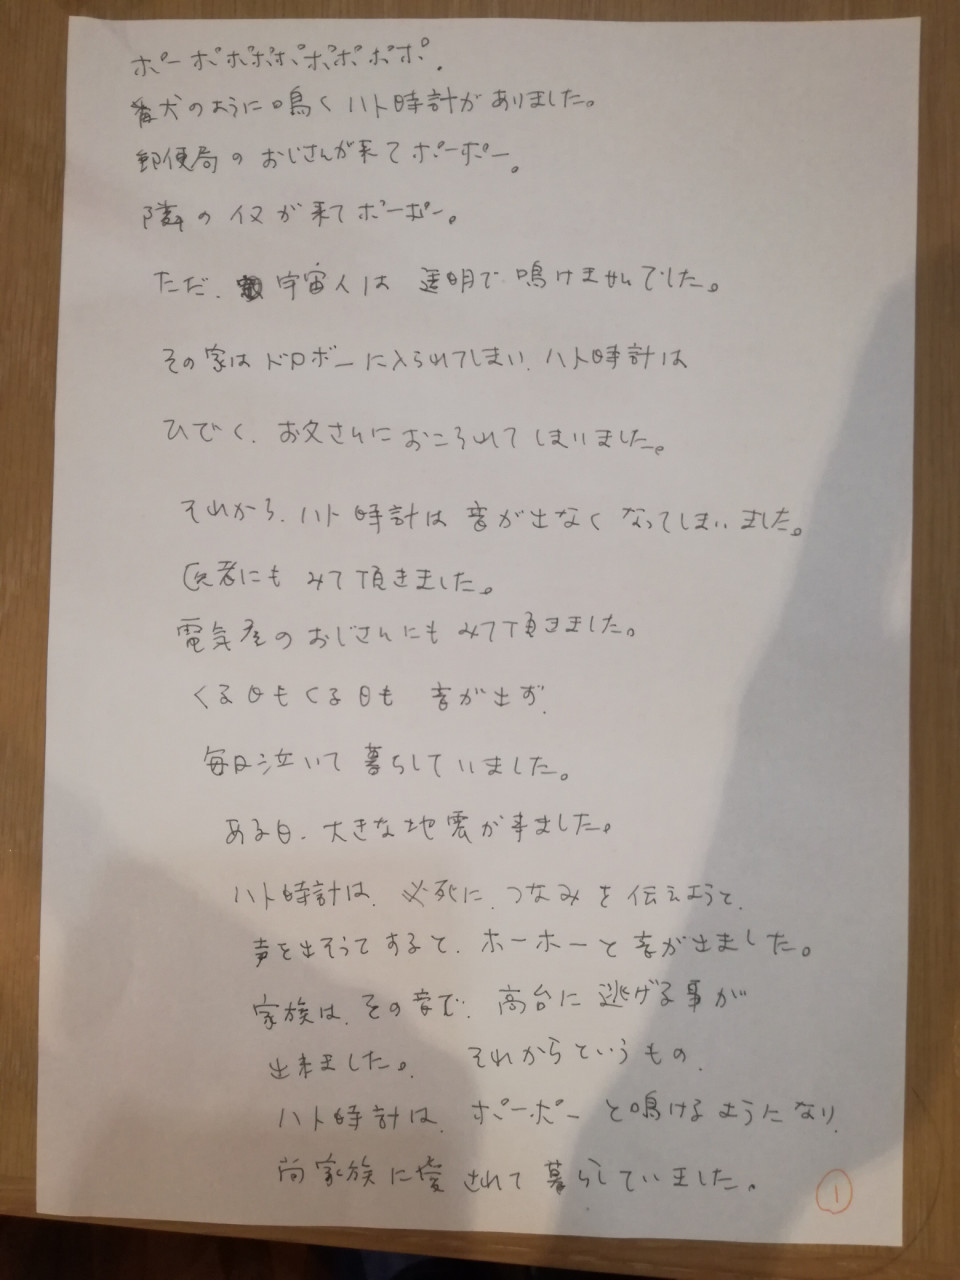 ポーポポポポポポポポ.
番犬のように鳴くハト時計がありました。
郵便局のおじさんが来てポーポー。
隣のイヌが来てポーポー。
ただ、宇宙人は透明で鳴けませんでした。
その家はドロボーに入られてしまい、ハト時計は
ひでく、お父さんにおこられてしまいました。
それから、ハト時計は音が出なくなってしまいました。
医者にもみて頂きました。
電気屋のおじさんにもみて頂きました。
くる日もくる日も音が出ず、
毎日泣いて暮らしていました。
ある日、大きな地震が来ました。
ハト時計は、必死に、つなみを伝えようと、
声を出そうてすると、ホーホーと音が出ました。
家族は、その音で、高台に逃げる事が
出来ました。 それからというもの、
ハト時計は、ポーポーと鳴けるようになり、
尚家族に愛されて暮らしていました。
1